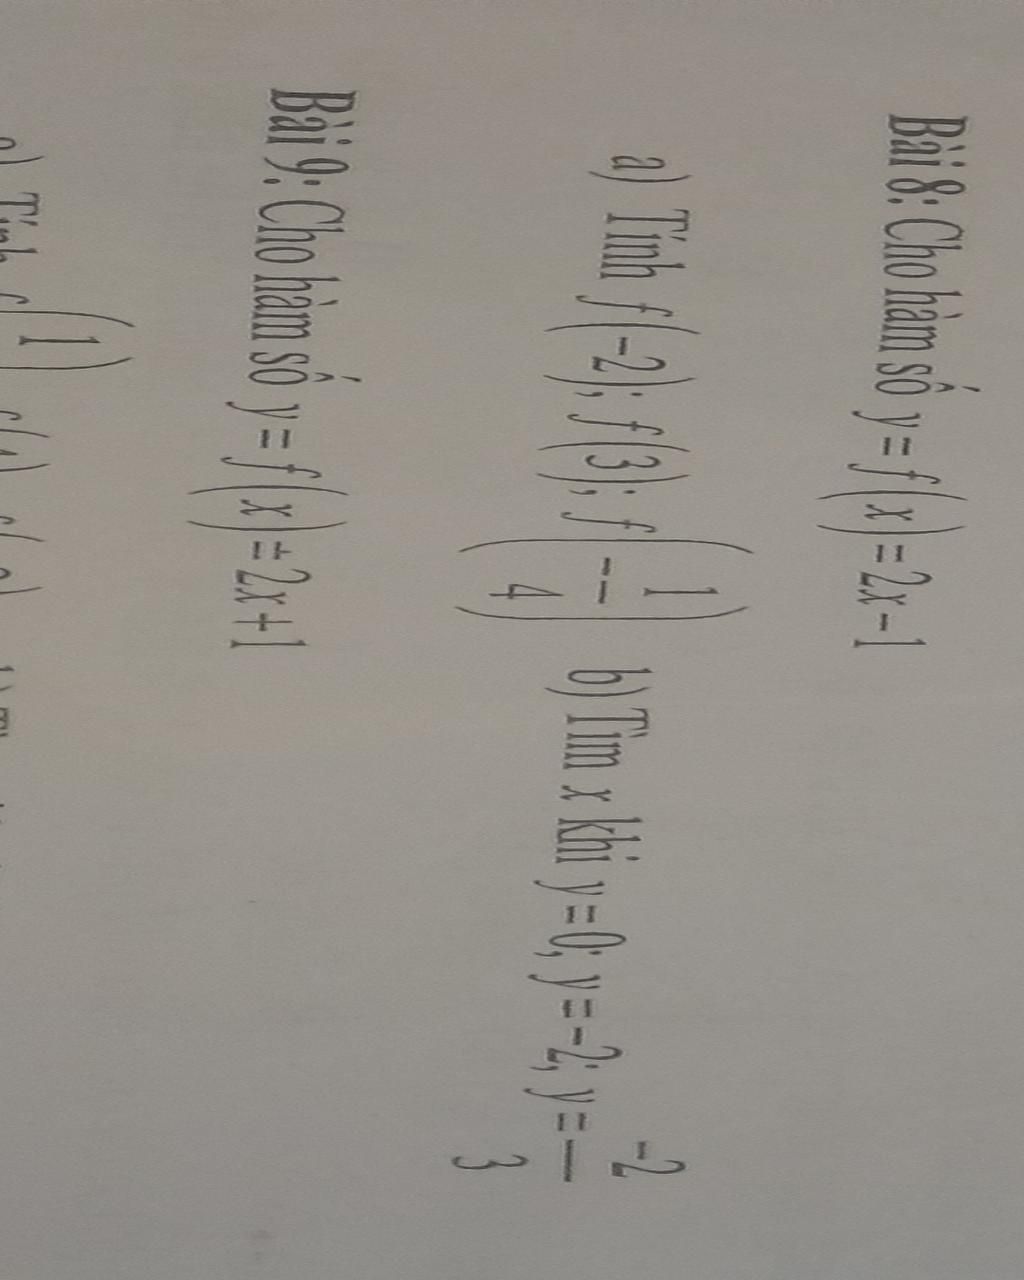 Bài 8: Cho hàm số y = f(x) = 2x − 1
a) Tính f(−2); f(3); f(−1/4) b) Tìm x khi y = 0; y = −2; y = −2/3
Bài 9: Cho hàm số y = f(x) = 2x + 1